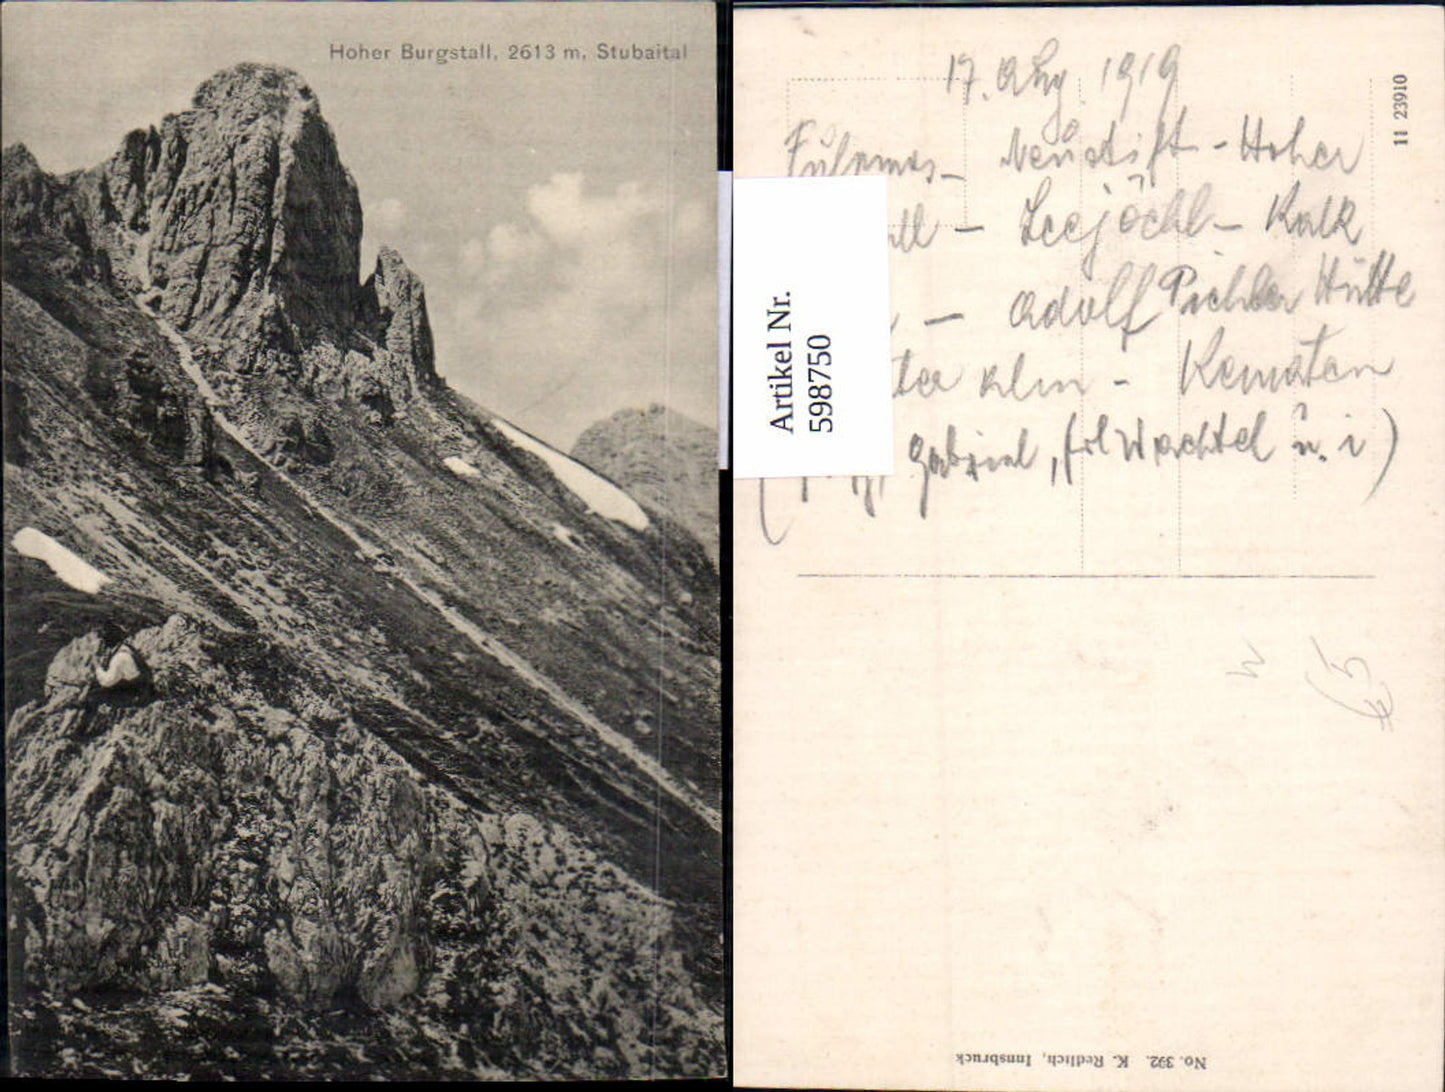 Hoher Burgstall, 2613 m, Stubaital
17. Aug. 1919
Fulpmes - Neustift - Hoher
all - Seejöchl - Kalk
- Adolf Pichler Hütte
ter Alm - Kematen
( Gabriel, Frl Wachtel u. i )
11 23910
Artikel Nr.
598750
No. 392. K. Redlich, Innsbruck